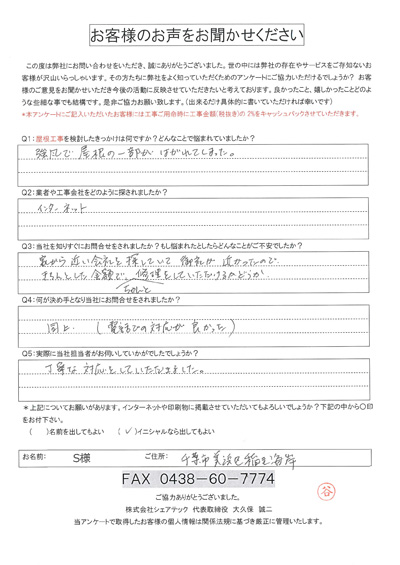 お客様のお声をお聞かせください
この度は弊社にお問い合わせをいただき、誠にありがとうございました。世の中には弊社の存在やサービスをご存知ないお
客様が沢山いらっしゃいます。その方たちに弊社をよく知っていただくためのアンケートにご協力いただけるでしょうか？ お客
様のご意見をお聞かせいただき今後の活動に反映させていただきたいと考えております。良かったこと、嬉しかったことどのよ
うな些細な事でも結構です。是非ご協力お願い致します。（出来るだけ具体的に書いていただければ幸いです）
*本アンケートにご記入いただいたお客様には工事ご用命時に工事金額(税抜き)の2%をキャッシュバックさせていただきます。
Q1：屋根工事を検討したきっかけは何ですか？どんなことで悩まれていましたか？
強風で屋根の一部がはがれてしまった。
Q2：業者や工事会社をどのように探されましたか？
インターネット
Q3：当社を知りすぐにお問合せをされましたか？もし悩まれたとしたらどんなことがご不安でしたか？
家から近い会社を探していて 御社が近かったので
きちんとした金額で、修理をしていただけるかどうか
ちゃんと
Q4：何が決め手となり当社にお問合せをされましたか？
同上 （電話での対応が良かった）
Q5：実際に当社担当者がお伺いしていかがでしたでしょうか？
丁寧な対応をしていただきました。
＊上記についてお願いがあります。インターネットや印刷物に掲載させていただいてもよろしいでしょうか？下記の中から〇印
をお付下さい。
（ ）名前を出してもよい （✓）イニシャルなら出してもよい
お名前： S様 ご住所： 千葉市美浜区稲毛海岸
FAX 0438-60-7774
谷
ご協力ありがとうございました。
株式会社シェアテック 代表取締役 大久保 誠二
当アンケートで取得したお客様の個人情報は関係法規に基づき厳正に管理いたします。